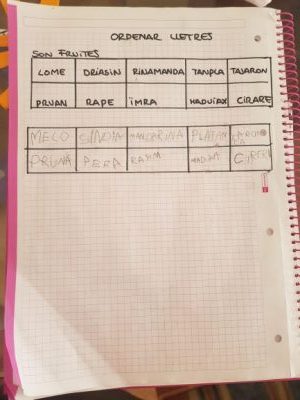 ORDENAR LLETRES
SON FRUITES
LOME DRIASIN RINAMANDA TANPLA TAJARON
PRUAN RAPE IMRA HADUIAX CIRARE
MELO SINDIA MANDARINA PLATAN
PRUNA PERA